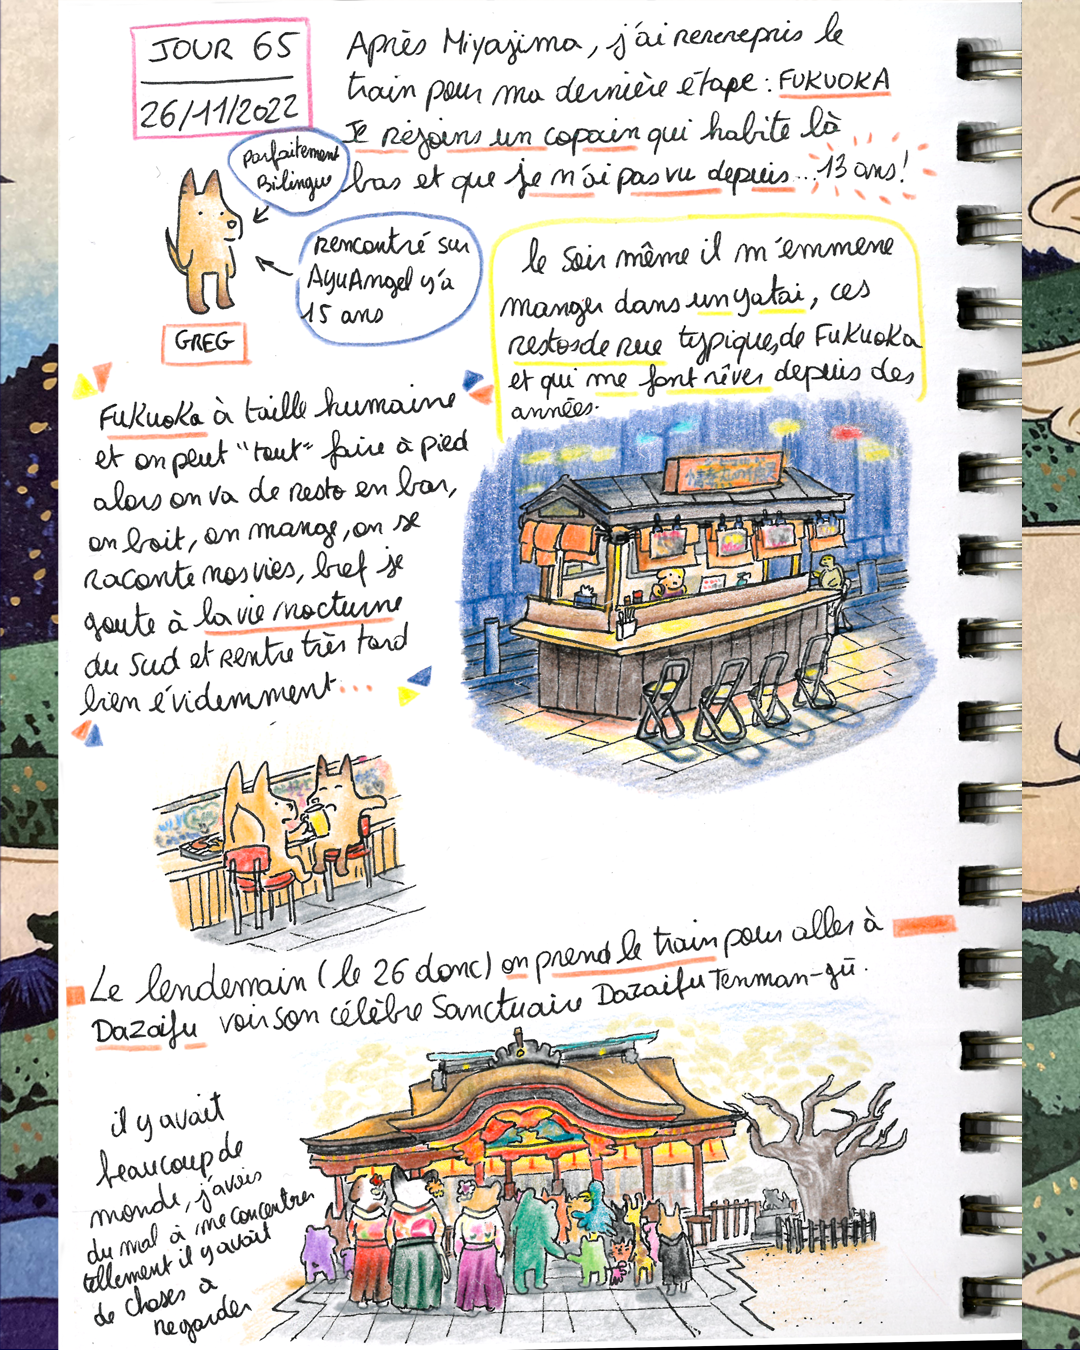 JOUR 65
26/11/2022
Après Miyajima, j'ai rererepris le
train pour ma dernière étape : FUKUOKA
Je rejoins un copain qui habite là
bas et que je n'ai pas vu depuis... 13 ans!
Parfaitement
Bilingue
rencontré sur
AyuAngel y'a
15 ans
GREG
le soir même il m'emmene
manger dans un yatai, ces
restos de rue typiques de Fukuoka
et qui me font rêver depuis des
années.
Fukuoka à taille humaine
et on peut "tout" faire à pied
alors on va de resto en bar,
on boit, on mange, on se
raconte nos vies, bref je
goute à la vie nocturne
du sud et rentre très tard
bien évidemment...
Le lendemain (le 26 donc) on prend le train pour aller à
Dazaifu voir son célèbre Sanctuaire Dazaifu Tenman-gū.
il y avait
beaucoup de
monde, j'avais
du mal à me concentrer
tellement il y avait
de choses à
regarder